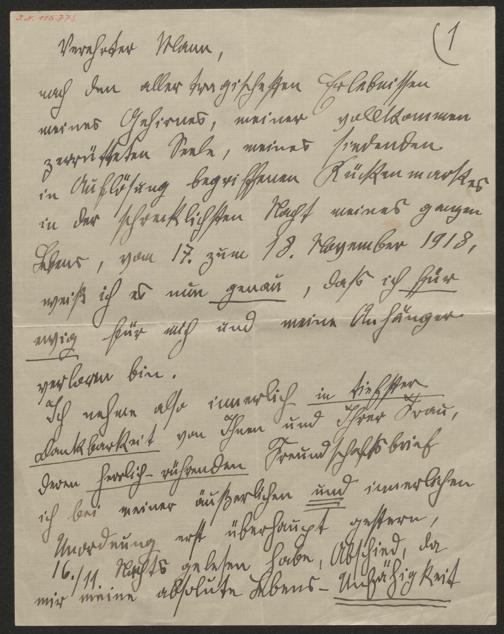 J.N. 115.773
(1
Verehrter Mann,
nach den allertragischesten Erlebnissen
meines Gehirnes, meiner vollkommen
zerrütteten Seele, meines siedenden
in Auflösung begriffenen Rückenmarkes
in der schrecklichsten Nacht meines ganzen
Lebens, vom 17. zum 18. November 1918,
weiß ich es nun genau, dass ich für
ewig für mich und meine Anhänger
verloren bin.
Ich nehme also innerlich in tiefster
Dankbarkeit von Ihnen und Ihrer Frau,
deren herrlich-rührenden Freundschaftsbrief
ich bei meiner äußerlichen und innerlichen
Unordnung erst überhaupt gestern,
16./11. Nachts gelesen habe, Abschied, da
mir meine absolute Lebens-Unfähigkeit